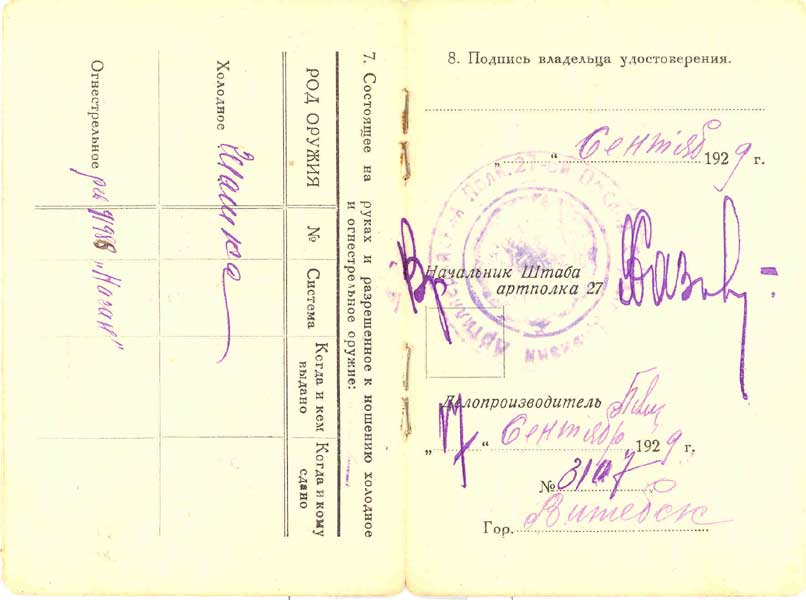 7. Состоящее на руках и разрешенное к ношению холодное
и огнестрельное оружие:
РОД ОРУЖИЯ № Система Когда и кем выдано Когда и кому сдано
Холодное Шашка
Огнестрельное „Наган"
8. Подпись владельца удостоверения.
„ “ Сентябр 1929 г.
Вр
Начальник Штаба
артполка 27
Делопроизводитель
„17“ Сентября 1929 г.
№
Гор. Витебск